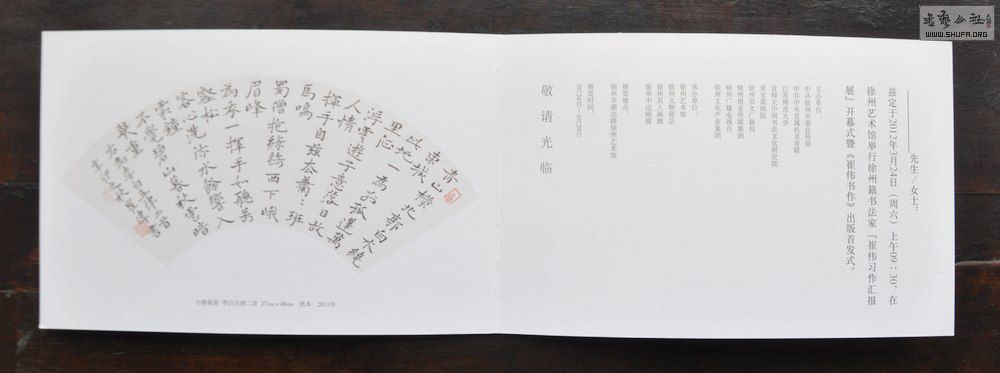 書藝公社
WWW.SHUFA.ORG
先生/女士:
兹定于2012年3月24日(周六)上午09:30,在
徐州艺术馆举行徐州籍书法家『崔伟习作汇报
展』开幕式暨《崔伟书作》出版首发式。
主办单位:
中共徐州市委宣传部
中共中央直属机关青联
江苏师范大学
首师大中国书法文化研究院
荣宝斋画院
徐州市文广新局
徐州报业传媒集团
徐州广播电视台
徐州文化产业集团
承办单位:
徐州艺术馆
徐州文物商店
徐州名人画廊
徐州中达画廊
展览地点:
徐州市湖北路徐州艺术馆
展览时间:
3月24日—3月29日
敬请光临
青山橫北郭白水繞
東城
此地一為別孤蓬萬
里征
浮雲遊子意落日故
人情
揮手自兹去蕭蕭班
馬鳴
蜀僧抱綠綺西下峨
眉峰
為我一揮手如聽萬
壑松
客心洗流水餘響入
霜鐘
不覺碧山暮秋雲暗
幾重
右李白五律二首
小楷扇面 李白五律二首 27cm x 48cm 纸本 2011年